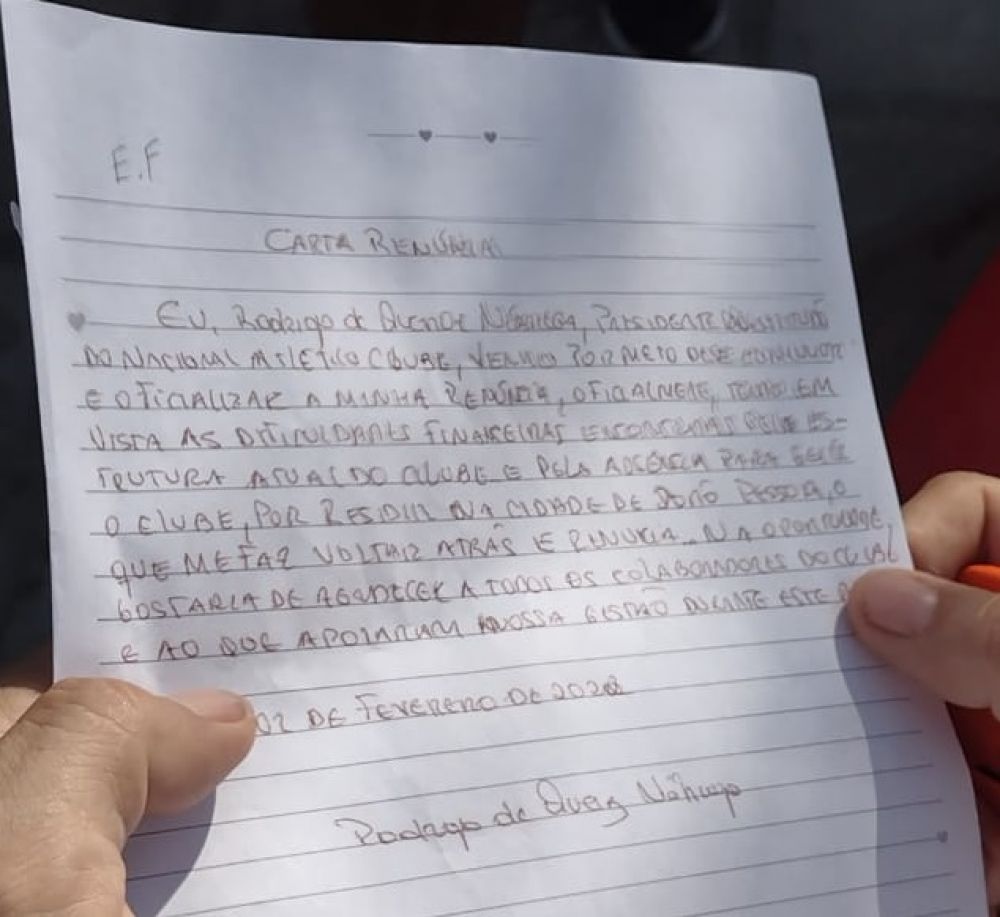 E.F
CARTA RENÚNCIA
EU, Rodrigo de Queiroz Nóbrega, PRESIDENTE
DO NACIONAL ATLÉTICO CLUBE, VENHO POR MEIO DESE
E OFICIALIZAR A MINHA RENÚNCIA, OFICIALMENTE, TENDO EM
VISTA AS DIFICULDADES FINANCEIRAS PELA ES-
TRUTURA ATUAL DO CLUBE E PELA AUSÊNCIA PARA GERIR
O CLUBE, POR RESIDIR NA CIDADE DE JOÃO PESSOA, O
QUE ME FAZ VOLTAR ATRÁS E RENUNCIA. NA OPORTUNIDADE,
GOSTARIA DE AGRADECER A TODOS OS COLABORADORES DO CLUBE
E AO QUE APOIARAM NOSSA GESTÃO DURANTE ESTE
02 DE FEVEREIRO DE 2022
Rodrigo de Queiroz Nóbrega